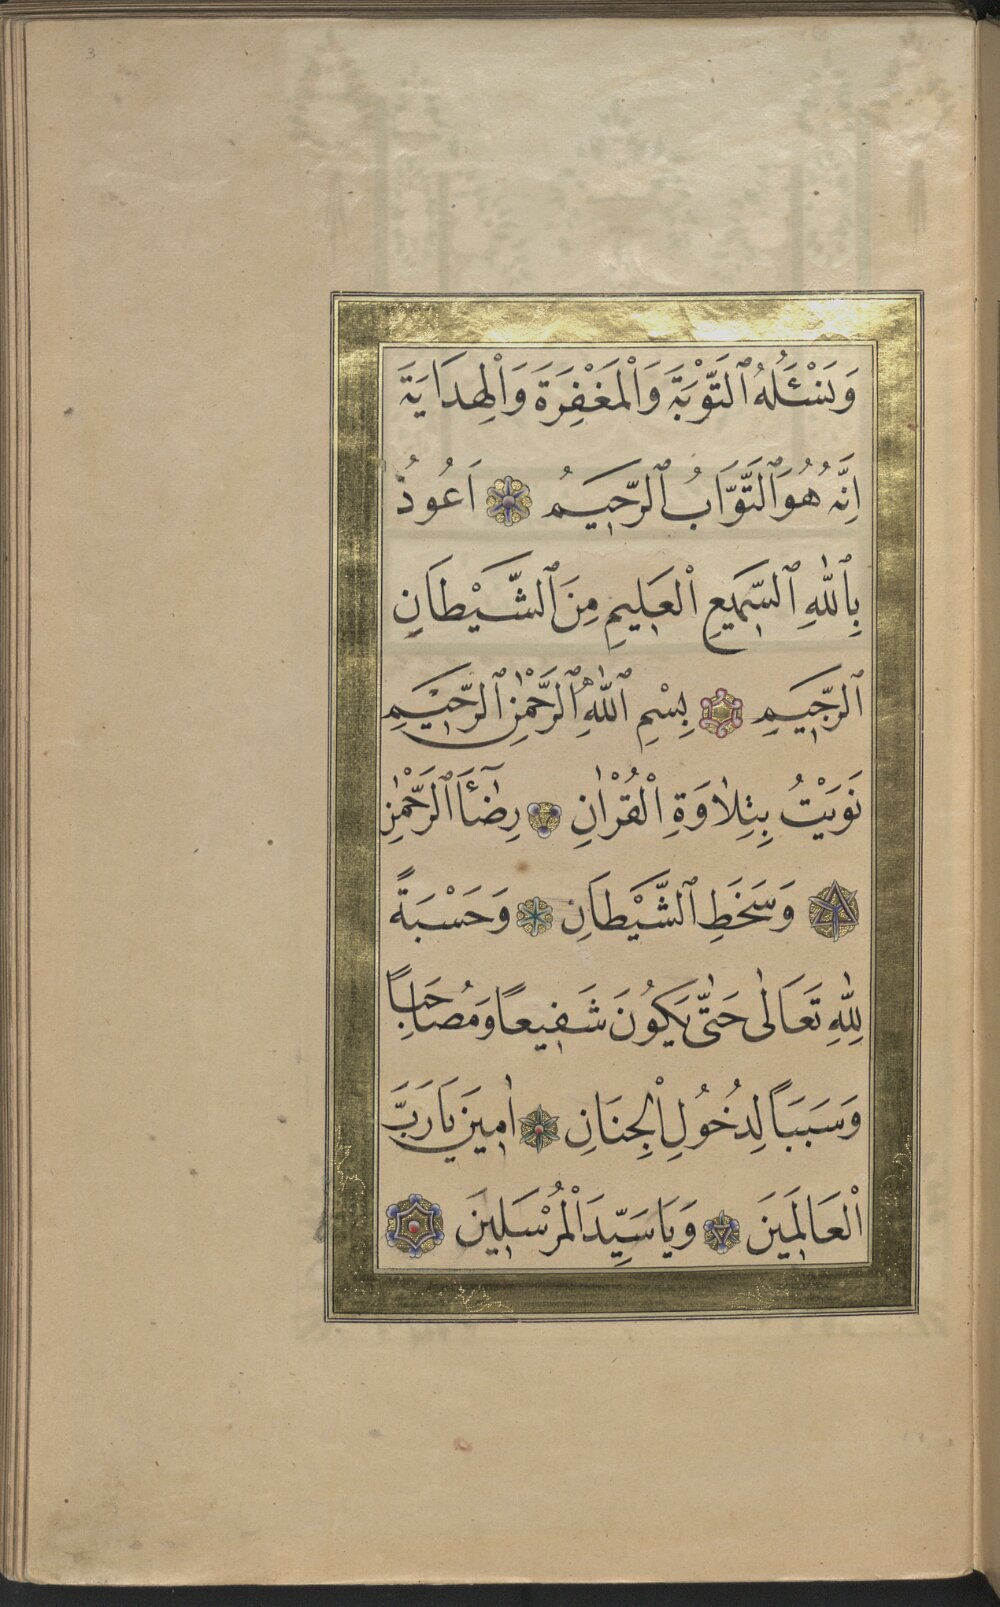 3
وَنَسْئَلُهُ ٱلتَّوْبَةَ وَالْمَغْفِرَةَ وَالْهِدَايَةَ
اِنَّهُ هُوَ ٱلتَّوَّابُ ٱلرَّحِيمُ اَعُوذُ
بِٱللّٰهِ ٱلسَّمِيعِ الْعَلِيمِ مِنَ ٱلشَّيْطَانِ
ٱلرَّجِيمِ بِسْمِ ٱللّٰهِ ٱلرَّحْمٰنِ ٱلرَّحِيمِ
نَوَيْتُ بِتِلَاوَةِ الْقُرْاٰنِ رِضَٓاءَ ٱلرَّحْمٰنِ
وَسَخَطِ ٱلشَّيْطَانِ وَحَسْبَةً
لِلّٰهِ تَعَالٰى حَتّٰى يَكُونَ شَفِيعًا وَمُصَاحِبًا
وَسَبَبًا لِدُخُولِ الْجِنَانِ اٰمِينَ يَا رَبَّ
الْعَالَمِينَ وَيَا سَيِّدَ الْمُرْسَلِينَ